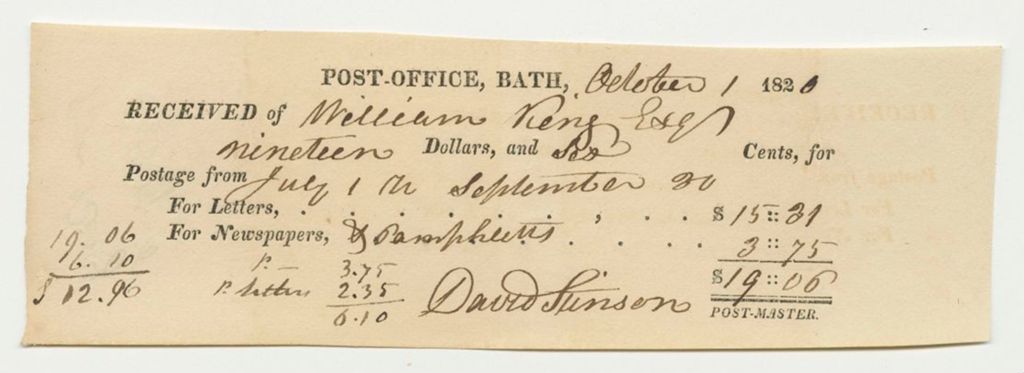 POST-OFFICE, BATH, October 1 1820
RECEIVED of William King Esqr
nineteen Dollars, and Six Cents, for
Postage from July 1 to September 30
For Letters, . . . . . . . . $ 15 :: 31
For Newspapers, & Pamphletts . . . . 3 :: 75
$ 19 :: 06
David Stinson
POST-MASTER.
19.06
6.10
$ 12.96
P. 3.75
P. letters 2.35
6.10